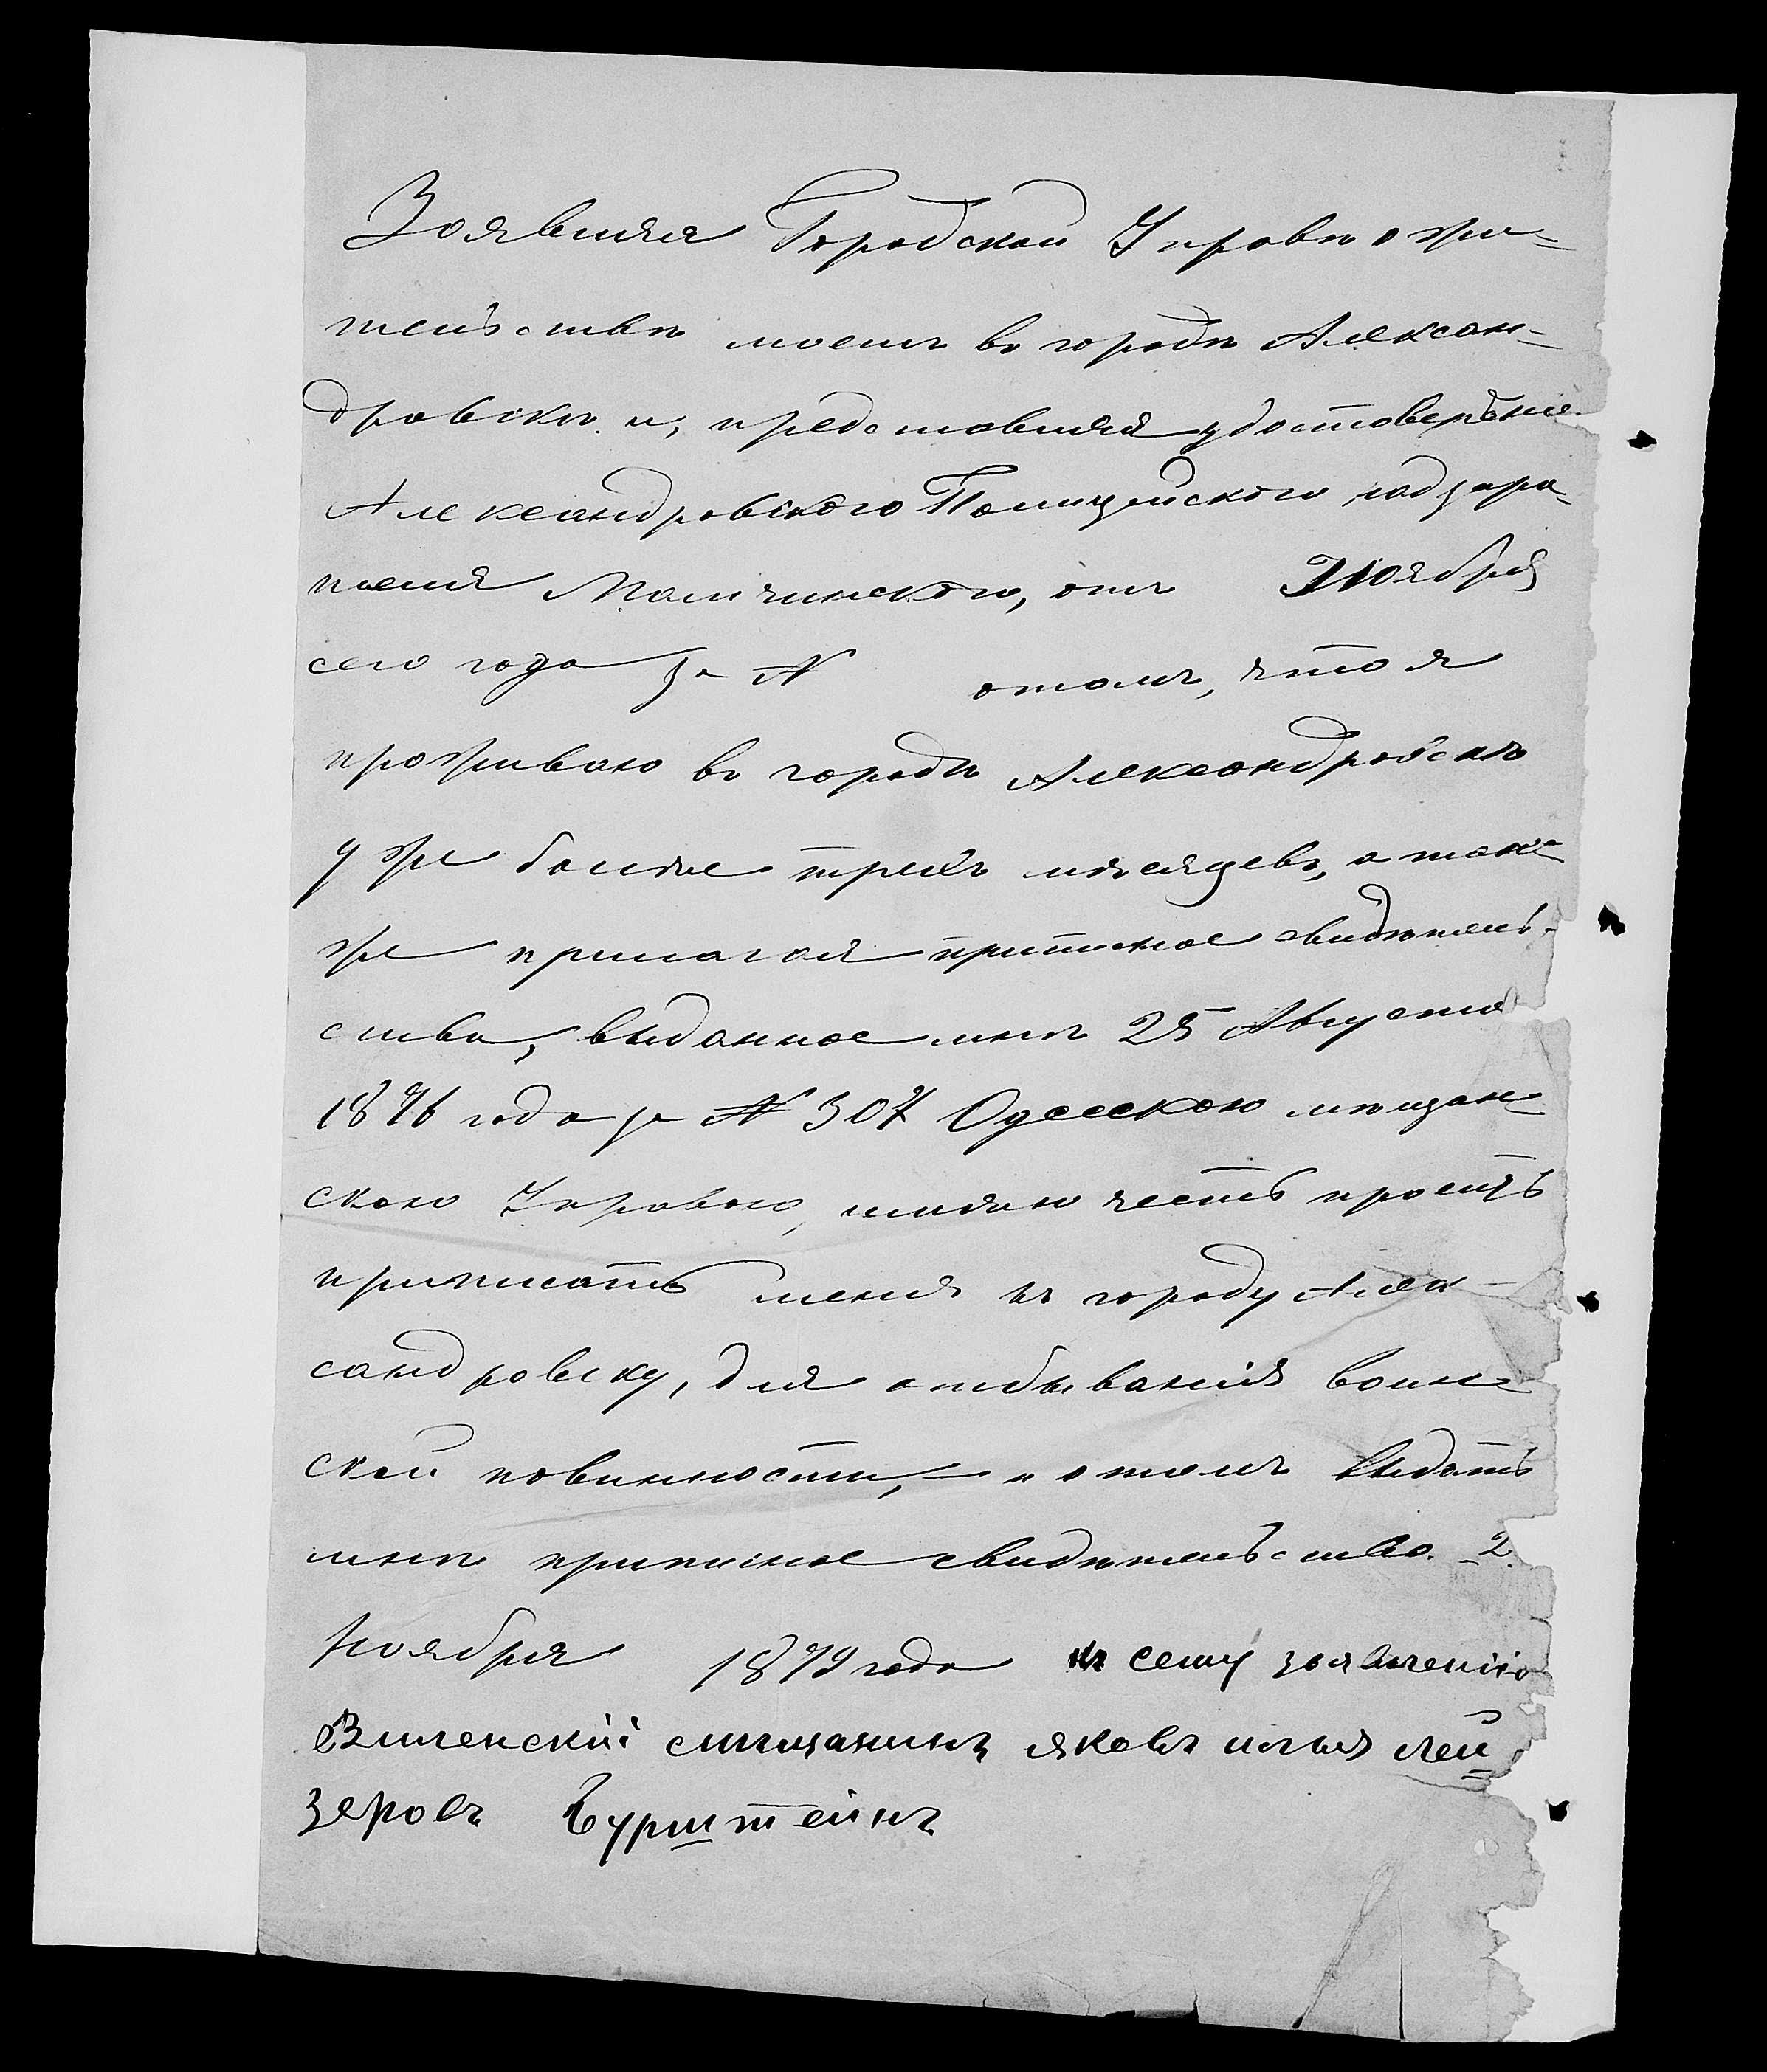 Заявляя Городской Управѣ о жи=
тельствѣ моемъ въ городѣ Алексан=
дровскѣ и, представляя удостоверѣние
Александровскаго Полицейскаго надзира
теля от Ноября
сего года за № отомъ, что я
проживаю въ городѣ Александровскѣ
уже болѣе трехъ мѣсяцевъ, а так=
же прилагая приписное свидѣтель=
ство, выданное мнѣ 25 Августа
1876 года за № 307 Одесскою мѣщан=
скою Управою, имѣю честь просить
приписать меня къ городу Алек
сандровску, для отбыванія воин=
ской повинности, – и отомъ выдать
мнѣ приписное свидѣтельство. 2
Ноября 1879 года къ сему заявленію
Виленскій смищанинъ яковъ илья леи=
зеровъ Бурштейнъ